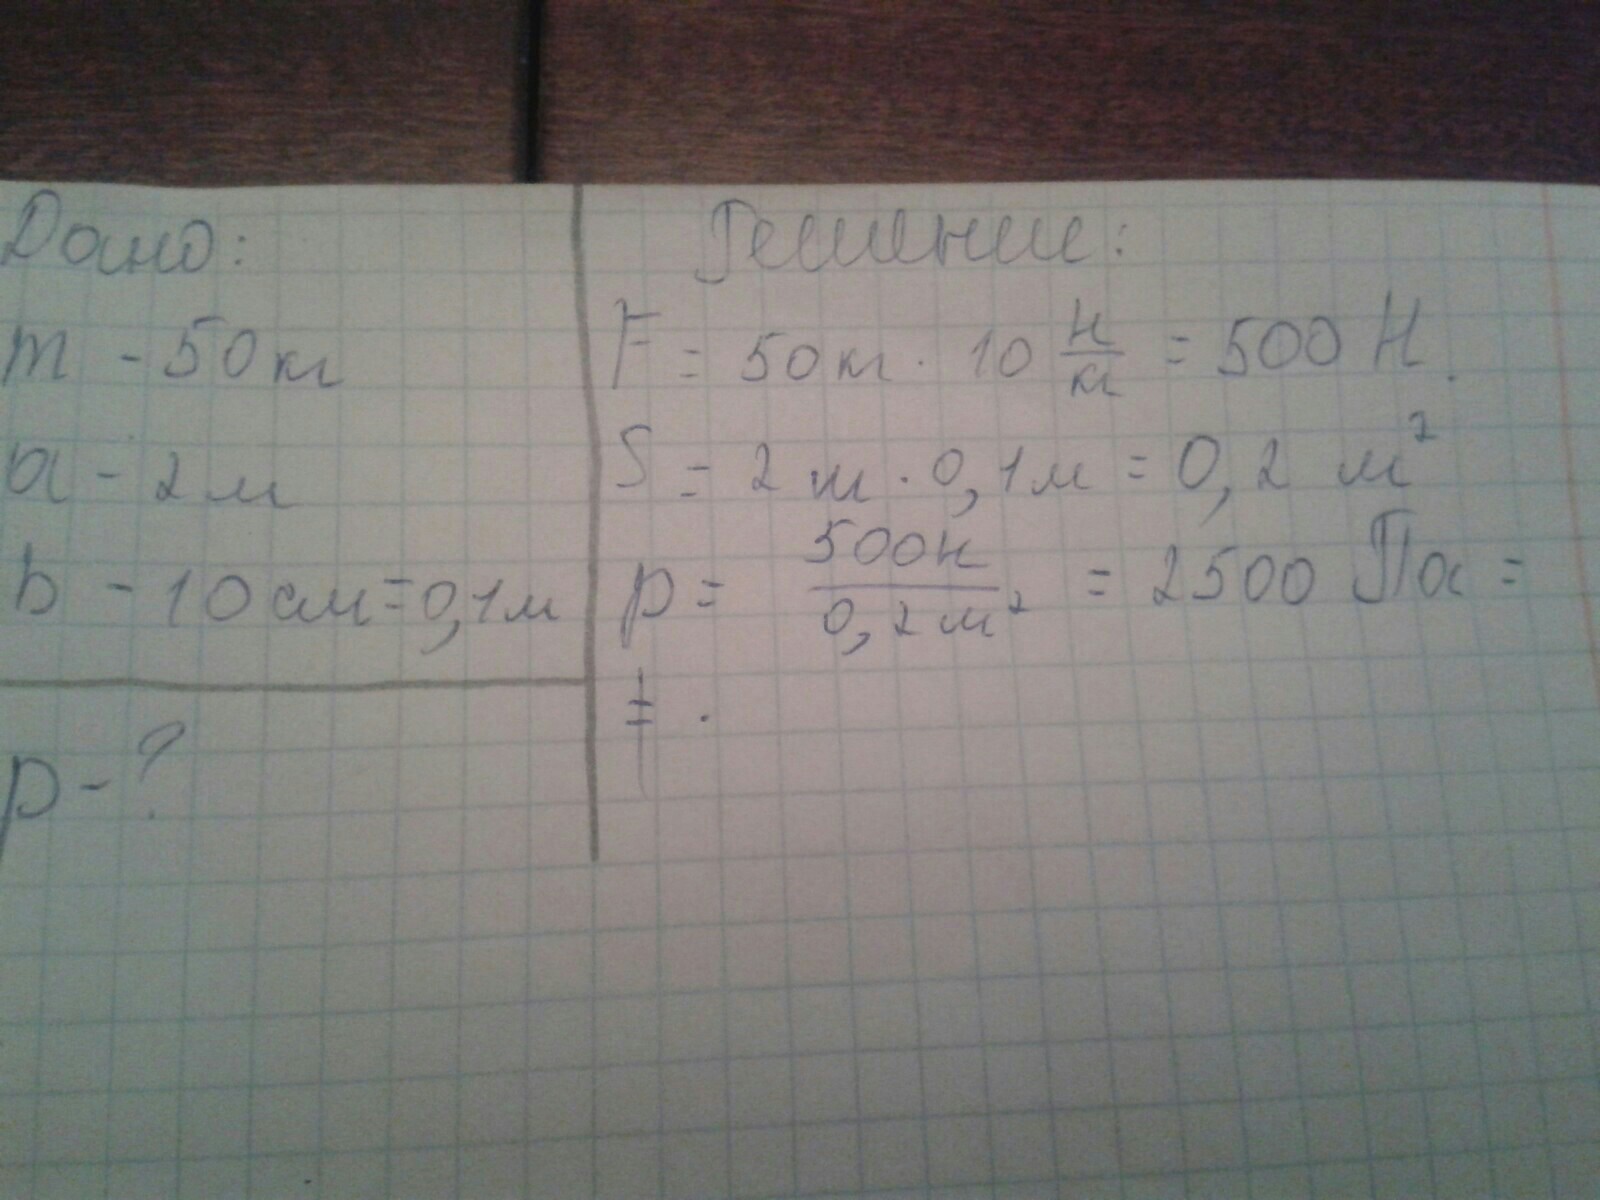 Дано:
m - 50 кг
a - 2 м
b - 10 см = 0,1 м
p - ?
Решение:
F = 50 кг · 10 Н/кг = 500 Н.
S = 2 м · 0,1 м = 0,2 м²
p = 500Н/0,2 м² = 2500 Па =